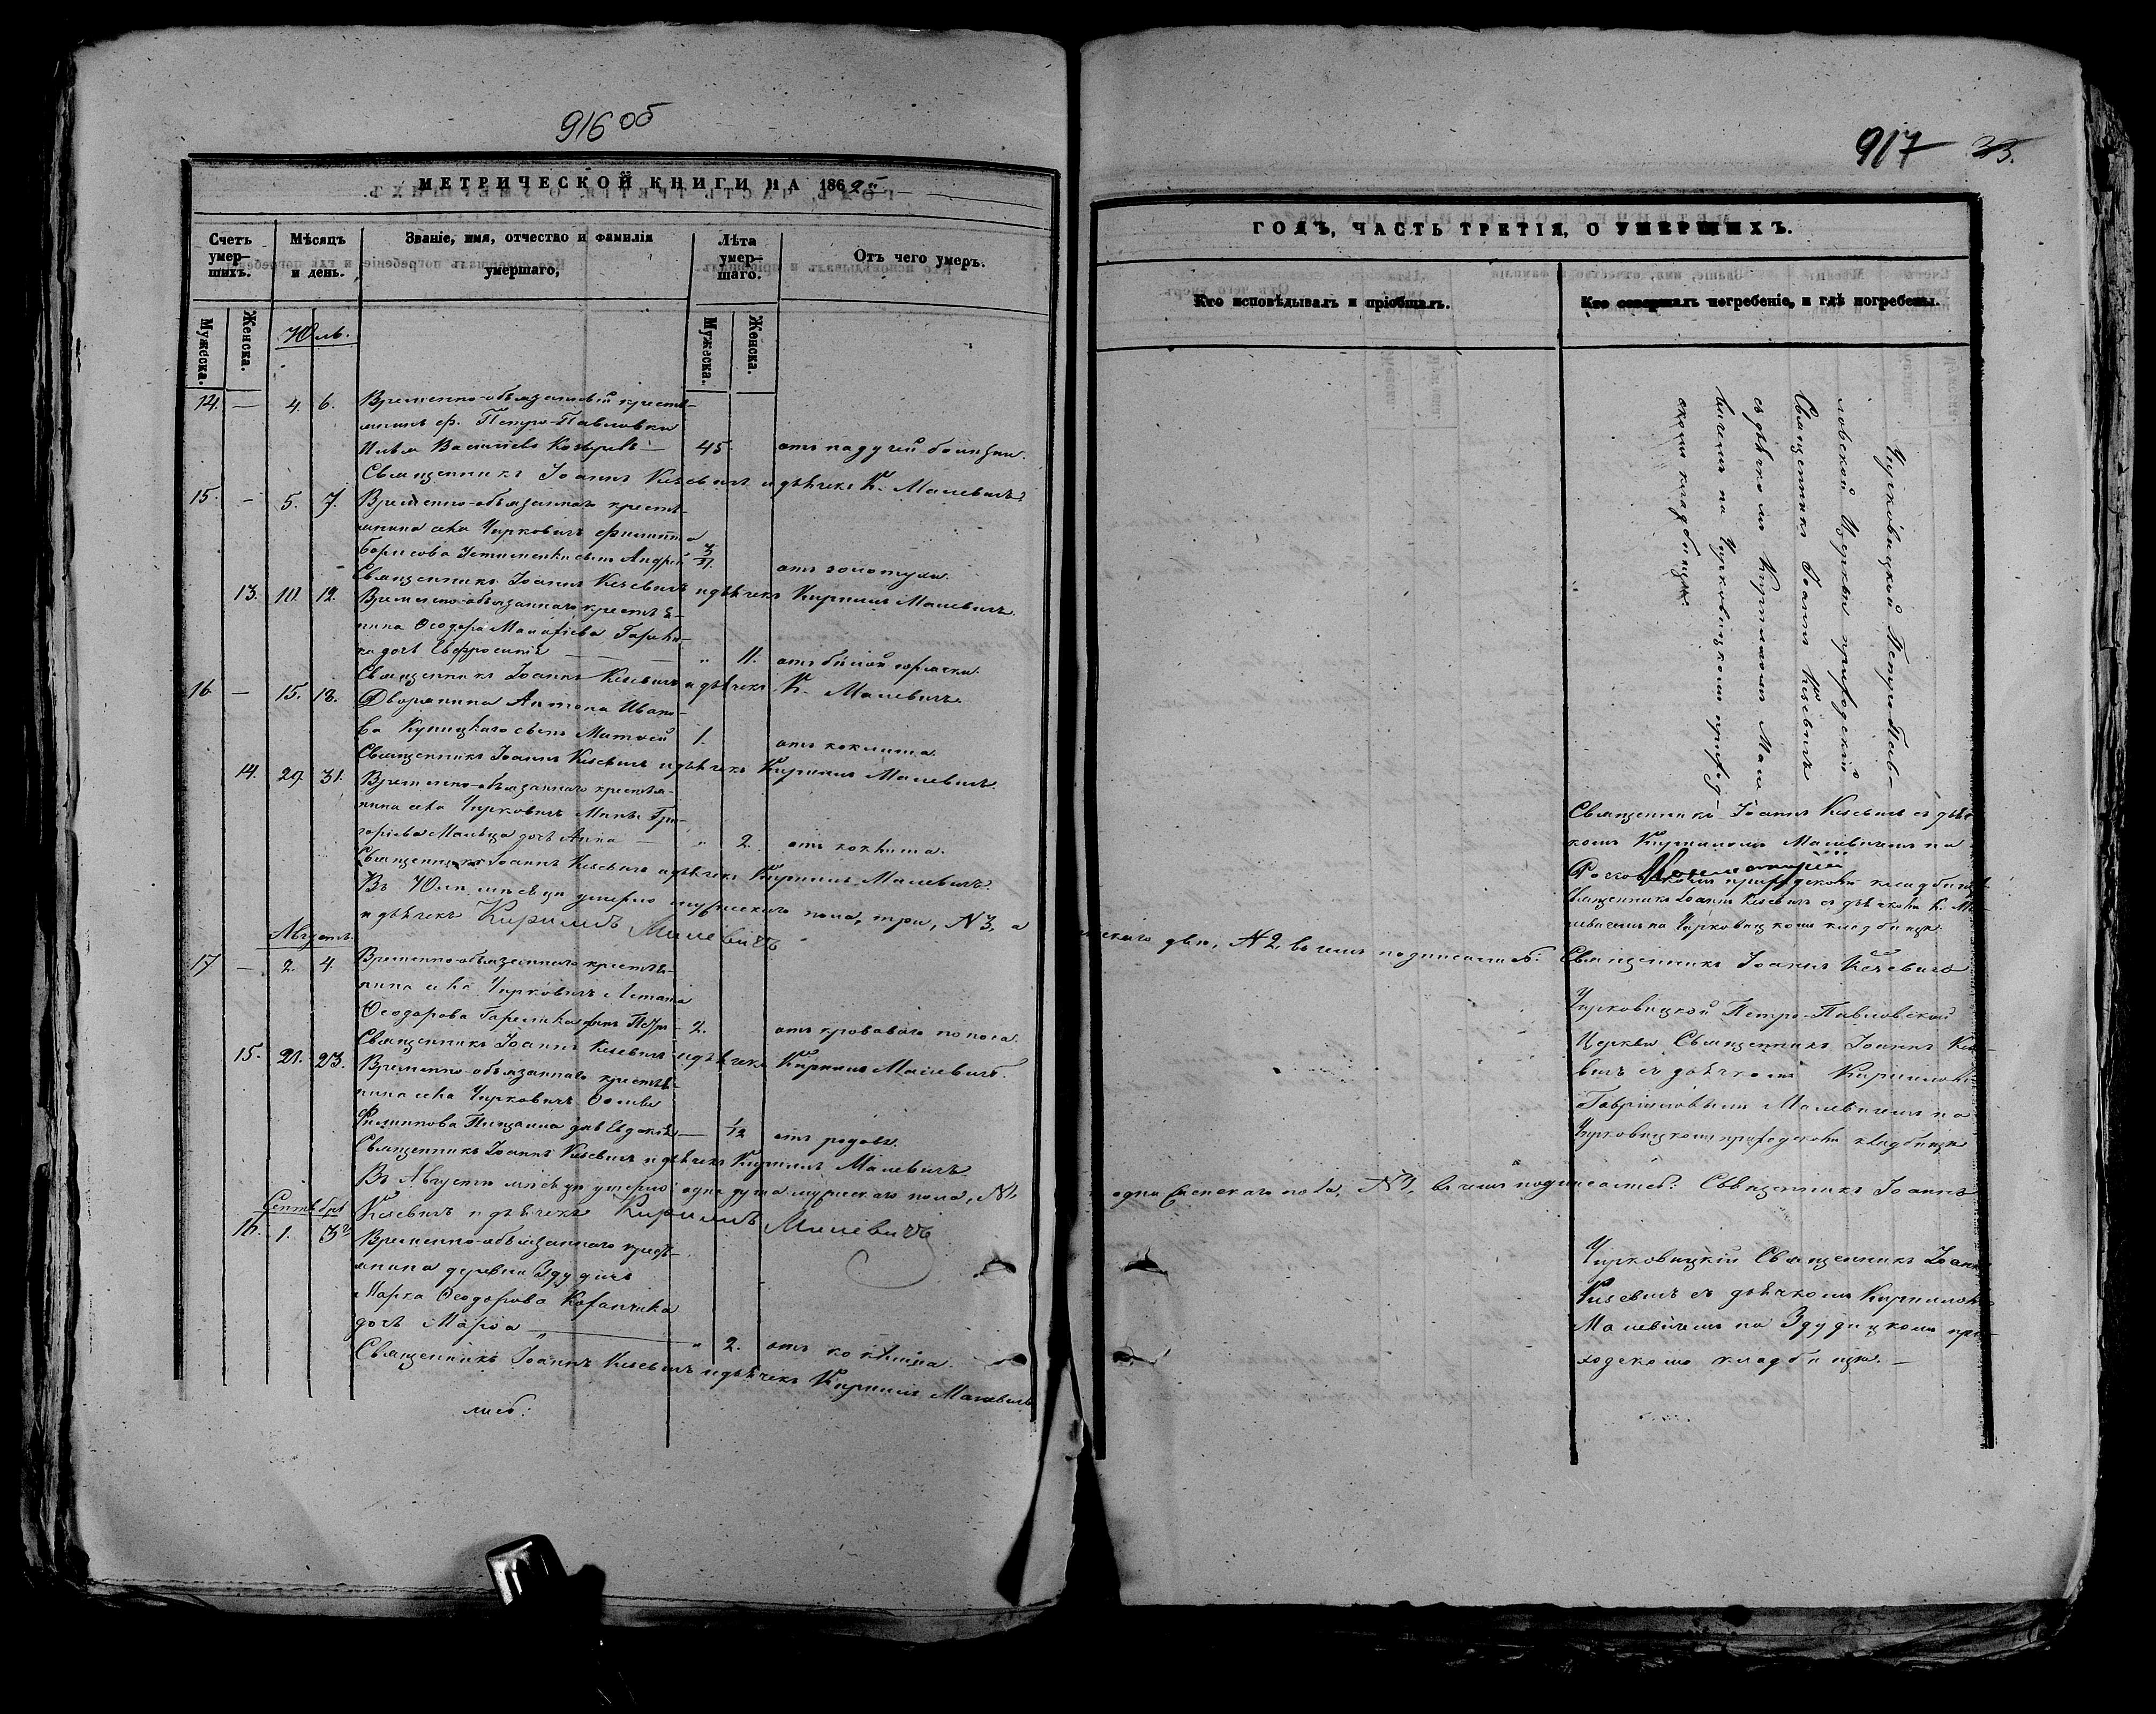 916 об
МЕТРИЧЕСКОЙ КНИГИ НА 1862й
Счетъ умер-шихъ.
Мѣсяцъ и день.
Званіе, имя, отчество и фамилія умершаго,
Лѣта умер-шаго.
Отъ чего умеръ.
Мужеска.
Женска.
Мужеска.
Женска.
Юль.
14. — 4. 6. Временно-обязанный кресть-
янинъ ф. Петро-Павловки
Илья Васильевъ — 45. отъ падучей болезни.
Священникъ Іоаннъ Кисевичъ и дьячекъ К. Малевичъ.
15. — 5. 7. Временно-обязаннаго кресть-
янина села Чирковичъ Филиппа
Борисова сынъ Андрей отъ золотухи.
Священникъ Іоаннъ Кисевичъ и дьячекъ Кириллъ Малевичъ.
13. 10. 12. Временно-обязаннаго крестья-
нина Ѳеодора
дочь Евфросинія — " 11. отъ
Священникъ Іоаннъ Кисевичъ и дьячекъ К. Малевичъ.
16. — 15. 18. Дворянина Антона Ивано-
ва Купицкаго сынъ Матѳей 1. отъ коклюша.
Священникъ Іоаннъ Кисевичъ и дьячекъ Кириллъ Малевичъ.
14. 29. 31. Временно-обязаннаго крестья-
нина села Чирковичъ Гри-
горіева дочь Анна — " 2. отъ коклюша.
Священникъ Іоаннъ Кисевичъ и дьячекъ Кириллъ Малевичъ.
Въ Юлѣ мѣсяцѣ умерло мужескаго пола, три, N 3, а
и дьячекъ Кириллъ Малевичъ
Августъ.
17 — 2. 4. Временно-обязаннаго крестья-
нина села Чирковичъ
Ѳеодорова сынъ Петръ — 2. отъ кроваваго поноса.
Священникъ Іоаннъ Кисевичъ и дьячекъ Кириллъ Малевичъ.
15. 21. 23. Временно-обязаннаго крестья-
нина села Чирковичъ
Филиппова дочь Евдокія — 1/12 отъ родовъ.
Священникъ Іоаннъ Кисевичъ и дьячекъ Кириллъ Малевичъ
Въ Августѣ мѣсяцѣ умерло одна душа мужескаго пола, N 1,
Кисевичъ и дьячекъ Кириллъ Малевичъ
Сентябрь
16. 1. 3. Временно-обязаннаго кресть-
янина деревни Здудичъ
Марка Ѳеодорова
дочь Марѳа — " 2. отъ коклюша.
Священникъ Іоаннъ Кисевичъ и дьячекъ Кириллъ Малевичъ
917 33.
ГОДЪ, ЧАСТЬ ТРЕТІЯ, О УМЕРШИХЪ.
Кто исповѣдывалъ и пріобщалъ.
Кто совершалъ погребеніе, и гдѣ погребены.
Чирковицкой Петро-Пав-
ловской Церкви приходскій
Священникъ Іоаннъ Кисевичъ
съ дьячкомъ Кирилломъ Мале
вичемъ на Чирковицкомъ приход-
скомъ кладбищѣ.
Священникъ Іоаннъ Кисевичъ съ дьяч
комъ Кирилломъ Малевичемъ на
приходскомъ кладбищѣ
Священникъ Іоаннъ Кисевичъ съ дьячкомъ К. Ма
левичемъ на Чирковицкомъ кладбищѣ.
женскаго двѣ, N 2, въ чемъ подписались: Священникъ Іоаннъ Кисевичъ
Чирковицкой Петро-Павловской
Церкви Священникъ Іоаннъ Кисе-
вичъ съ дьячкомъ Кирилломъ
Гавріиловымъ Малевичемъ на
Чирковицкомъ приходскомъ кладбищѣ
одна женскаго пола, N 1, въ чемъ подписались: Священникъ Іоаннъ
Чирковицкій Священникъ Іоаннъ
Кисевичъ съ дьячкомъ Кирилломъ
Малевичемъ на Здудицкомъ при-
ходскомъ кладбищѣ. —